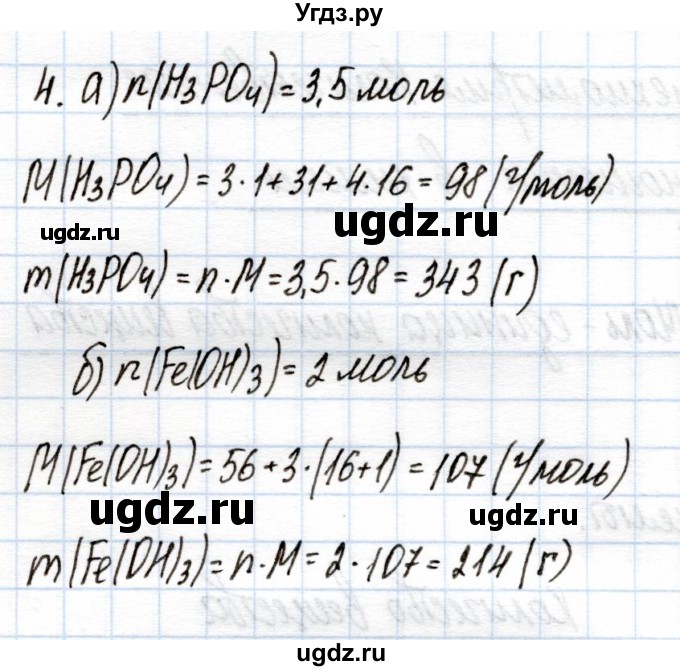 Угдз.ру
4. а) n(H₃PO₄) = 3,5 моль
M(H₃PO₄) = 3·1+31+4·16 = 98 (г/моль)
ugdz.ru ugdz.ru
m(H₃PO₄) = n·M = 3,5·98 = 343 (г)
б) n(Fe(OH)₃) = 2 моль
M(Fe(OH)₃) = 56+3·(16+1) = 107 (г/моль)
ugdz.ru ugdz.ru
m(Fe(OH)₃) = n·M = 2·107 = 214 (г)
ugdz.ru